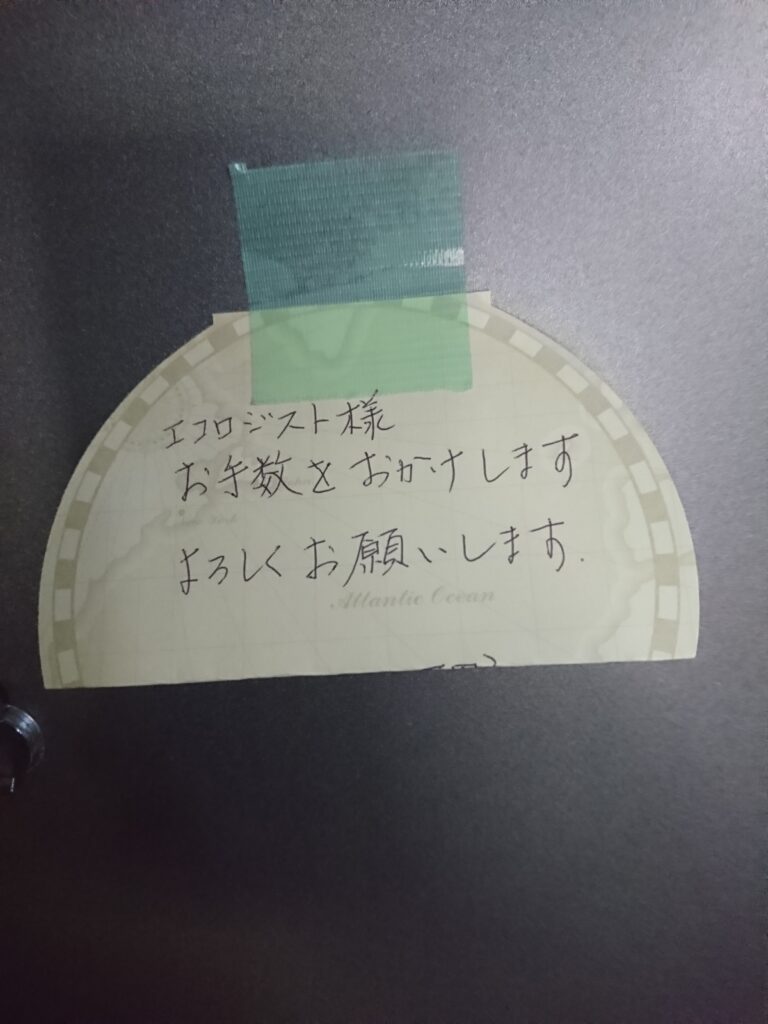 エコロジスト様
お手数をおかけします
よろしくお願いします.
Atlantic Ocean